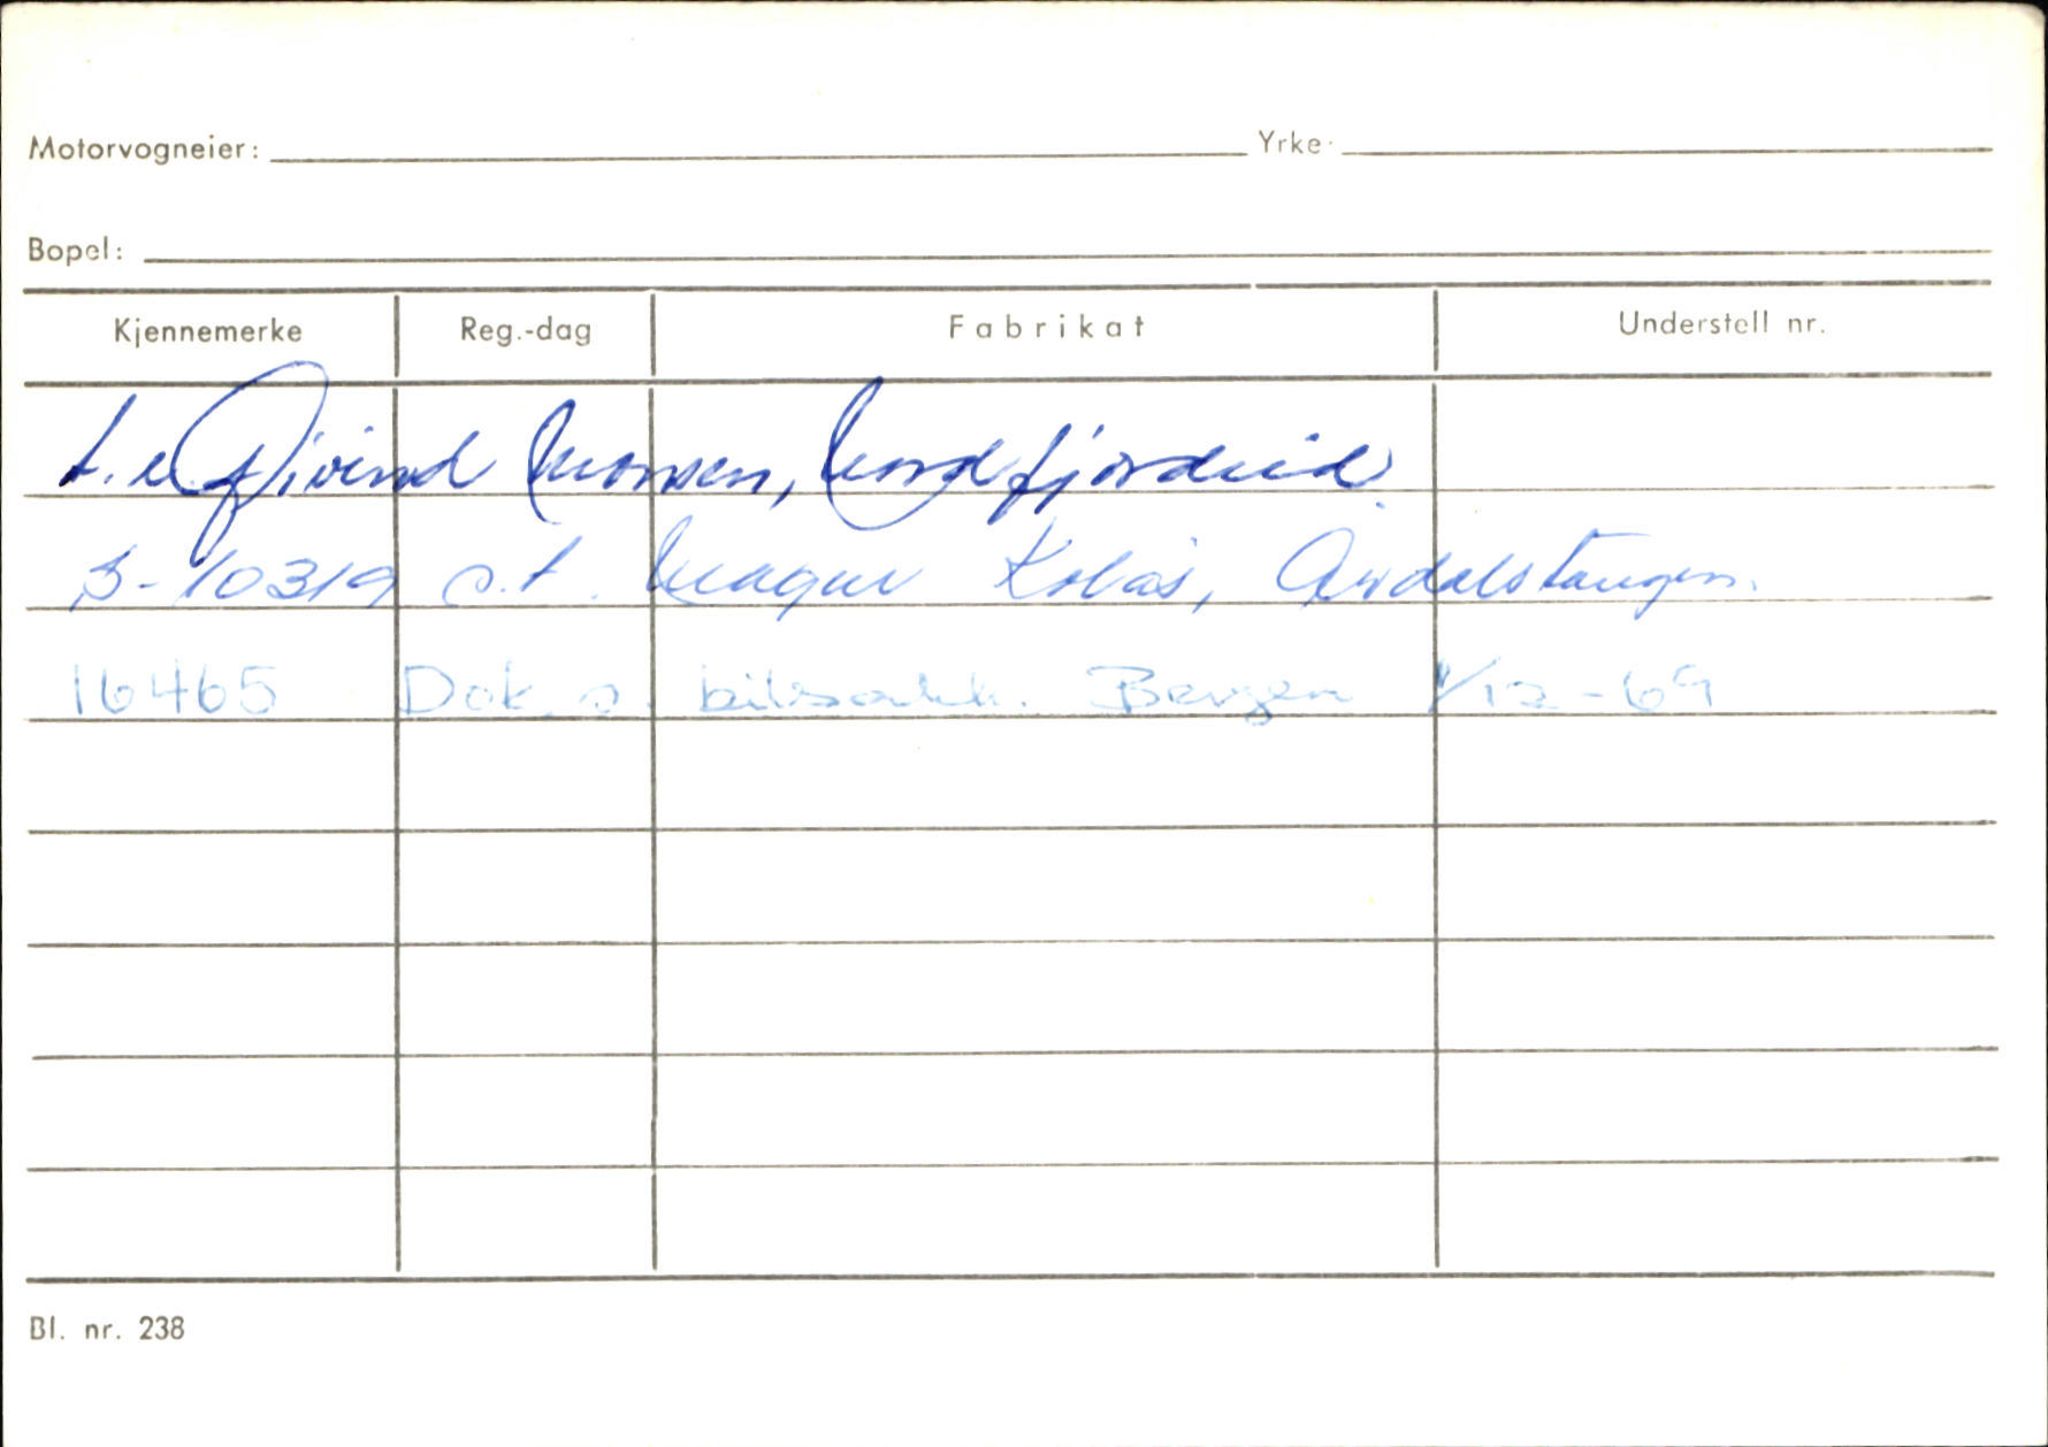 Motorvogneier: Yrke:
Bopel:
Kjennemerke Reg.-dag Fabrikat Understell nr.
t. e. Øivind Monsen, Nordfjordeid.
S-10319 o.t. Magnar Kolås, Årdalstangen.
16465 Dok. s. bilsakk. Bergen 1/12-69
Bl. nr. 238